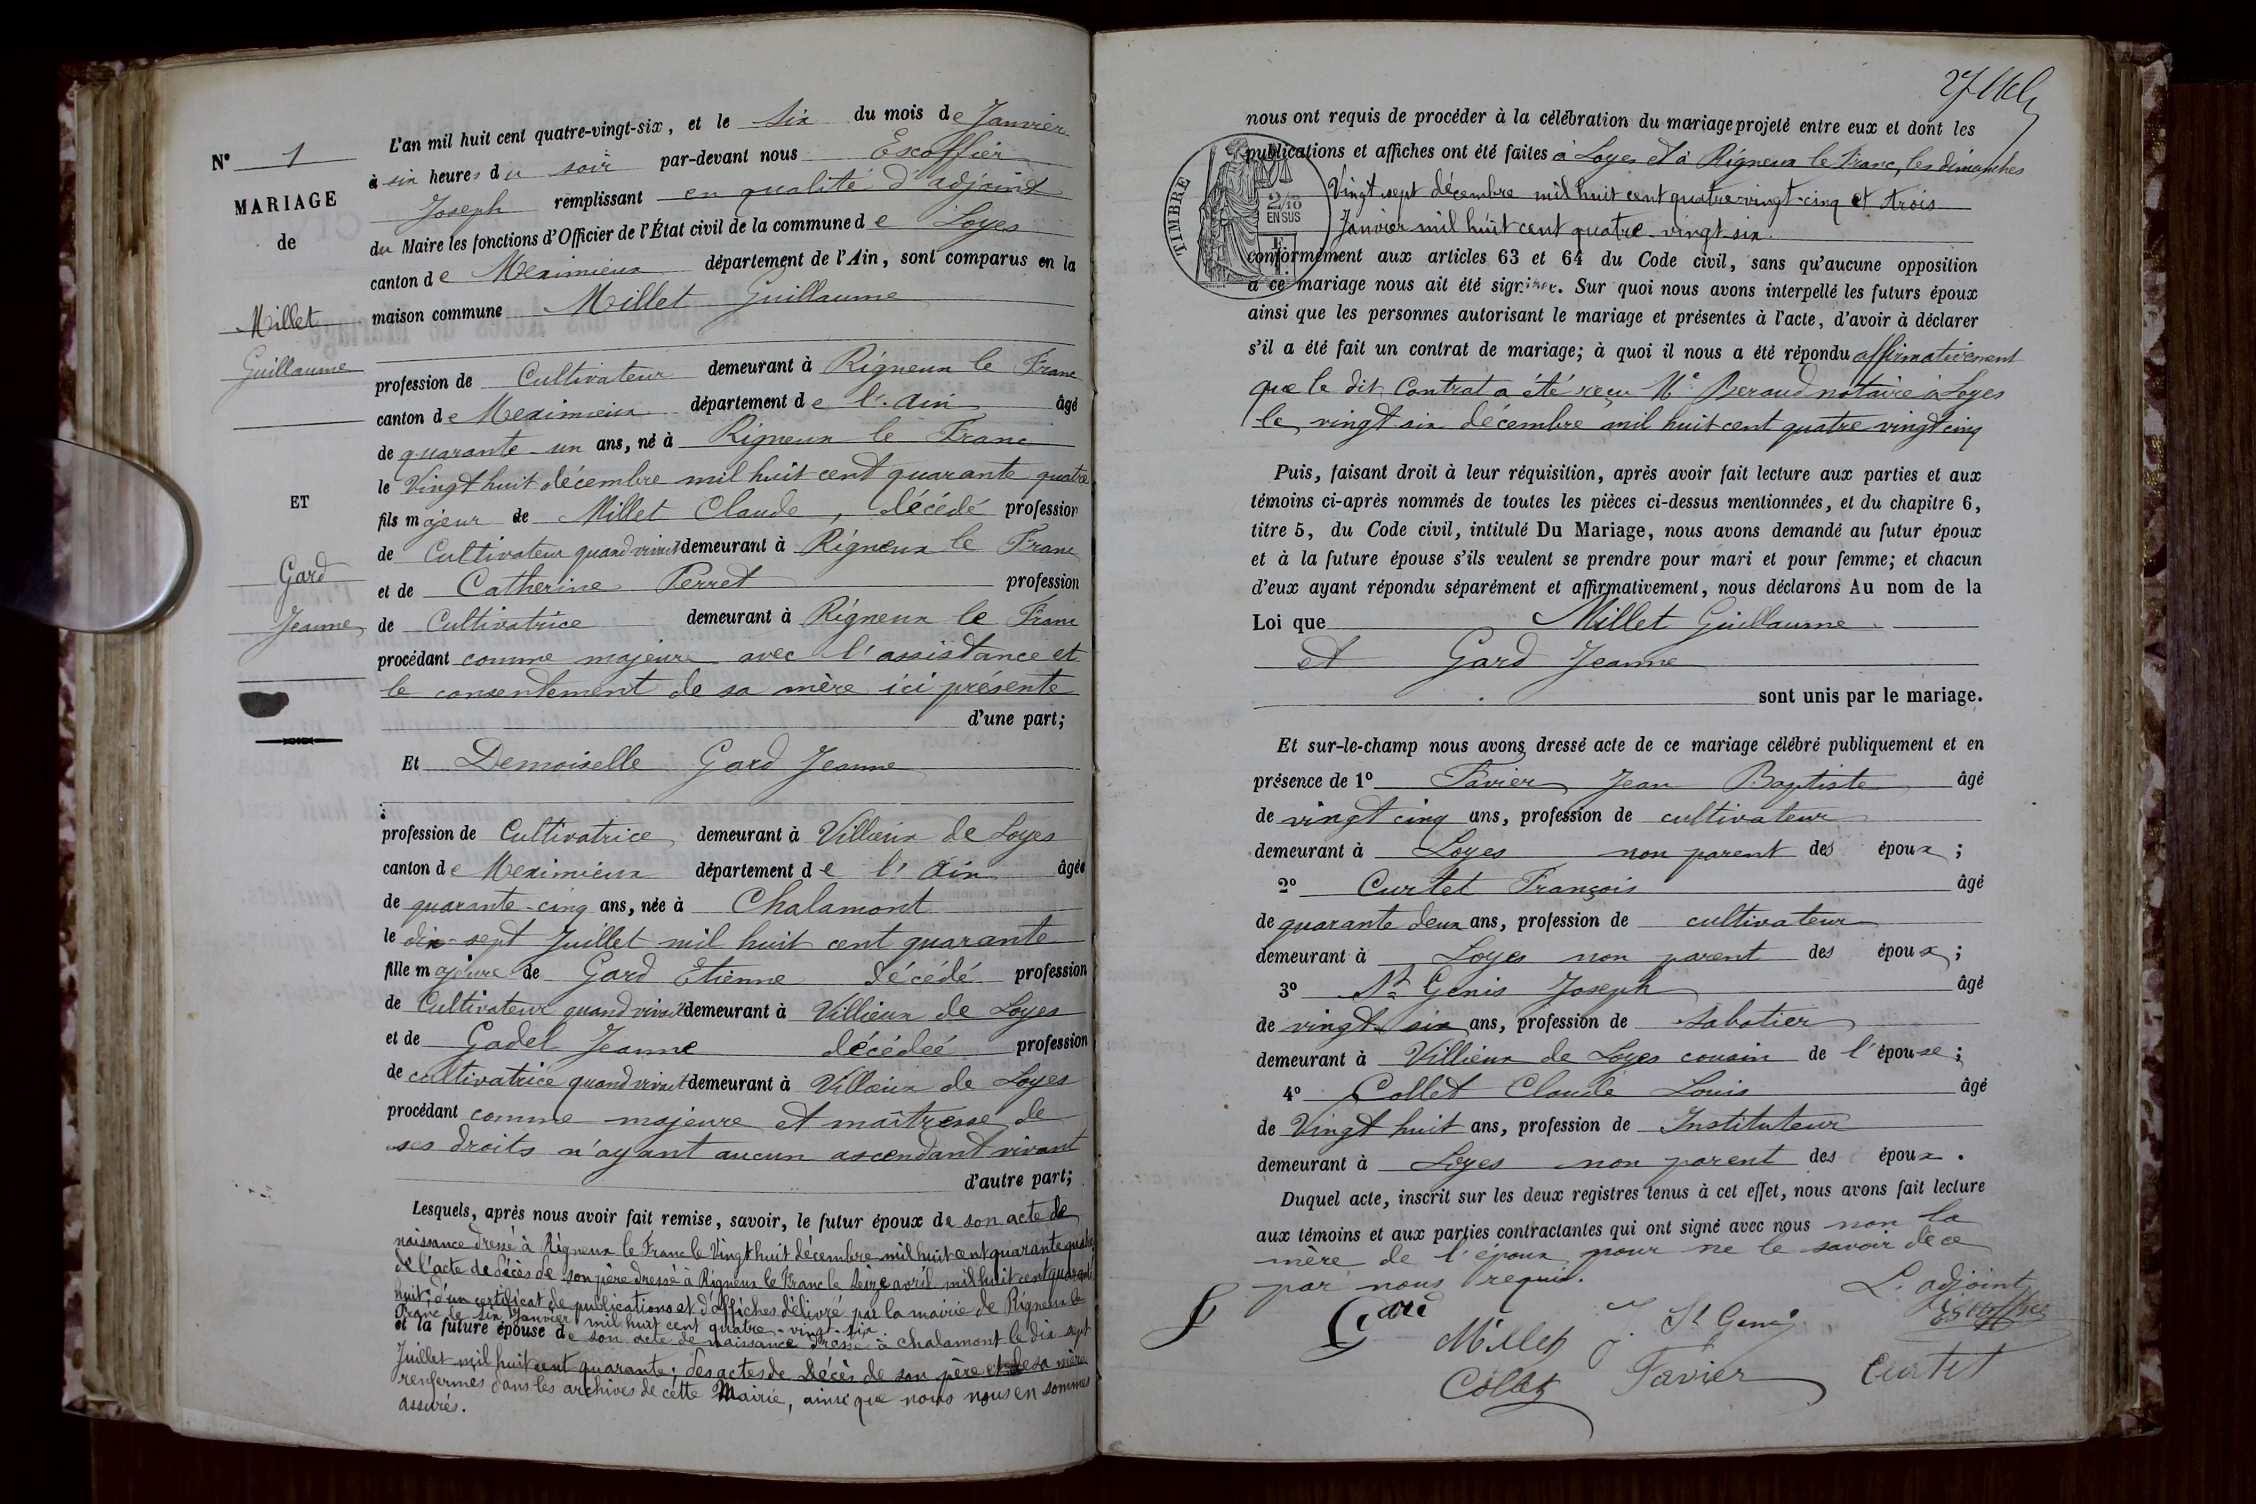 N° 1
MARIAGE
de
Millet
Guillaume
ET
Gard
Jeanne
L'an mil huit cent quatre-vingt-six, et le Six du mois de Janvier
à six heures du soir par-devant nous Escoffier
Joseph remplissant en qualité d'adjoint
du Maire les fonctions d'Officier de l'État civil de la commune de Loyes
canton de Meximieux département de l'Ain, sont comparus en la
maison commune Millet Guillaume
profession de Cultivateur demeurant à Rigneux le Franc
canton de Meximieux département de l'Ain âgé
de quarante-un ans, né à Rigneux le Franc
le Vingt huit décembre mil huit cent quarante quatre
fils majeur de Millet Claude, décédé profession
de Cultivateur quand vivait demeurant à Rigneux le Franc
et de Catherine Perret profession
de Cultivatrice demeurant à Rigneux le Franc
procédant comme majeur avec l'assistance et
le consentement de sa mère ici présente
d'une part;
Et Demoiselle Gard Jeanne
profession de Cultivatrice demeurant à Villieux de Loyes
canton de Meximieux département de l'Ain âgée
de quarante-cinq ans, née à Chalamont
le dix-sept Juillet mil huit cent quarante
fille majeure de Gard Etienne décédé profession
de Cultivateur quand vivait demeurant à Villieux de Loyes
et de Gadel Jeanne décédée profession
de cultivatrice quand vivait demeurant à Villieux de Loyes
procédant comme majeure et maîtresse de
ses droits n'ayant aucun ascendant vivant
d'autre part;
Lesquels, après nous avoir fait remise, savoir, le futur époux de son acte de
naissance dressé à Rigneux le Franc le Vingt huit décembre mil huit cent quarante quatre
de l'acte de décès de son père dressé à Rigneux le Franc le Seize avril mil huit cent quarante
huit; d'un certificat de publications et d'affiches délivré par la mairie de Rigneux le
Franc le six Janvier mil huit cent quatre-vingt-six.
et la future épouse de son acte de naissance dressé à Chalamont le dix sept
Juillet mil huit cent quarante; des actes de décès de son père et de sa mère
renfermés dans les archives de cette Mairie, ainsi que nous nous en sommes
assurés.
nous ont requis de procéder à la célébration du mariage projeté entre eux et dont les
publications et affiches ont été faites à Loyes et à Rigneux le Franc, les dimanches
Vingt sept décembre mil huit cent quatre-vingt-cinq et trois
Janvier mil huit cent quatre-vingt-six.
TIMBRE
2/10
EN SUS
conformément aux articles 63 et 64 du Code civil, sans qu'aucune opposition
à ce mariage nous ait été signifiée. Sur quoi nous avons interpellé les futurs époux
ainsi que les personnes autorisant le mariage et présentes à l'acte, d'avoir à déclarer
s'il a été fait un contrat de mariage; à quoi il nous a été répondu affirmativement
que le dit Contrat a été reçu Me Beraud notaire à Loyes
le vingt six décembre mil huit cent quatre vingt cinq
Puis, faisant droit à leur réquisition, après avoir fait lecture aux parties et aux
témoins ci-après nommés de toutes les pièces ci-dessus mentionnées, et du chapitre 6,
titre 5, du Code civil, intitulé Du Mariage, nous avons demandé au futur époux
et à la future épouse s'ils veulent se prendre pour mari et pour femme; et chacun
d'eux ayant répondu séparément et affirmativement, nous déclarons Au nom de la
Loi que Millet Guillaume
et Gard Jeanne
sont unis par le mariage.
Et sur-le-champ nous avons dressé acte de ce mariage célébré publiquement et en
présence de 1° Favier Jean Baptiste âgé
de vingt cinq ans, profession de cultivateur
demeurant à Loyes non parent des époux;
2° Curtet François âgé
de quarante deux ans, profession de cultivateur
demeurant à Loyes non parent des époux;
3° St Genis Joseph âgé
de vingt six ans, profession de Sabotier
demeurant à Villieux de Loyes cousin de l'épouse;
4° Collet Claude Louis âgé
de Vingt huit ans, profession de Instituteur
demeurant à Loyes non parent des époux.
Duquel acte, inscrit sur les deux registres tenus à cet effet, nous avons fait lecture
aux témoins et aux parties contractantes qui ont signé avec nous non la
mère de l'époux pour ne le savoir de ce
par nous requis.
L'adjoint
Escoffier
Gard
Millet
J. St Genis
Collet
Favier
Curtet